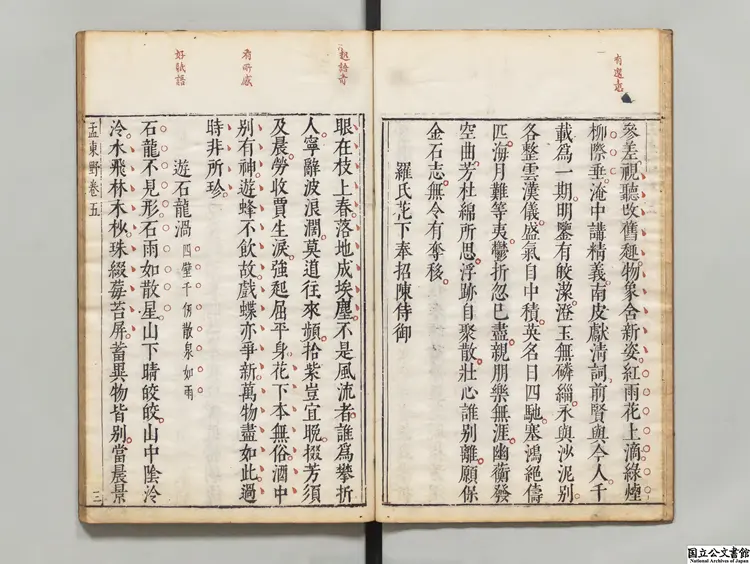 有遠意
參差視聽改舊趣物象含新姿紅雨花上滴綠煙
柳際垂淹中講精義南皮獻清詞前賢與今人千
載爲一期明鑒有皎潔澄玉無磷緇永與沙泥別
各整雲漢儀盛氣自中積英名日四馳塞鴻絕儔
匹海月難等夷鬱折忽已盡親朋樂無涯幽蘅發
空曲芳杜綿所思浮跡自聚散壯心誰別離願保
金石志無令有奪移
羅氏花下奉招陳侍御
起語奇
眼在枝上春落地成埃塵不是風流者誰爲攀折
人寧辭波浪濶莫道往來頻拾紫豈宜晚掇芳須
及晨勞收賈生淚強起屈平身花下本無俗酒中
別有神遊蜂不飲故戲蝶亦爭新萬物盡如此過
時非所珍
有所感
遊石龍渦 四壁千仞散泉如雨
石龍不見形石雨如散星山下晴皎皎山中陰泠
泠水飛林木杪珠綴莓苔屏蓄異物皆別當晨景
好狀語
孟東野卷五
三
国立公文書館
National Archives of Japan